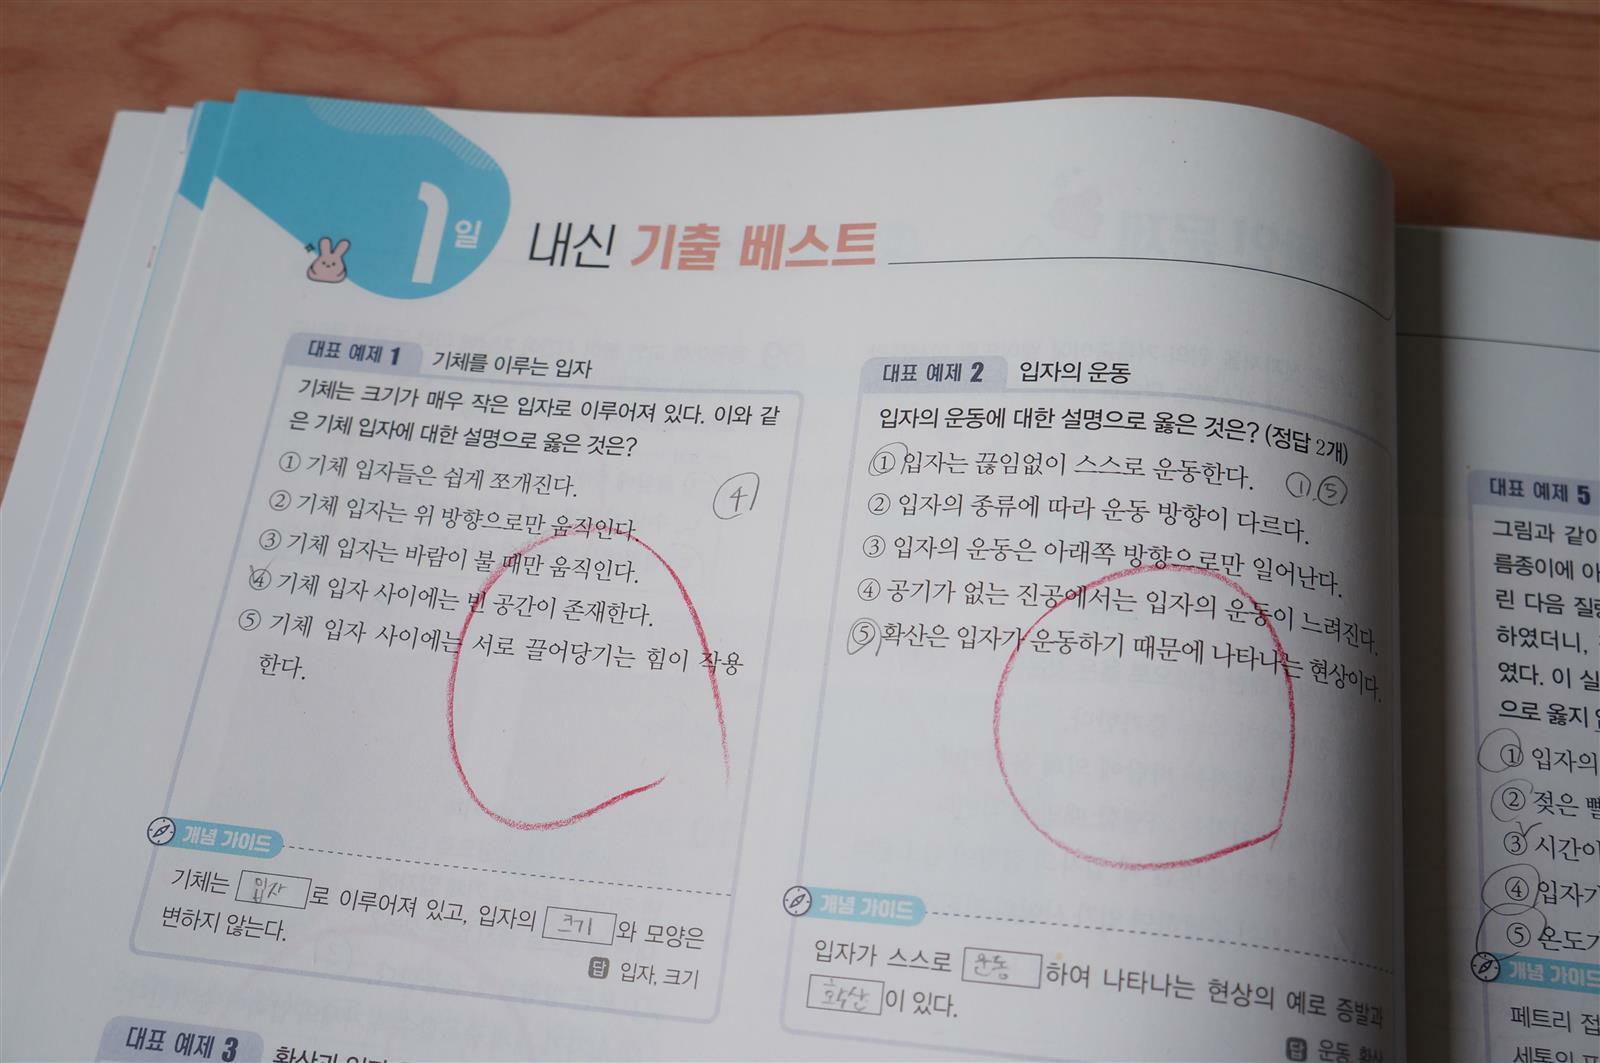 1일
내신 기출 베스트
대표 예제 1 기체를 이루는 입자
기체는 크기가 매우 작은 입자로 이루어져 있다. 이와 같
은 기체 입자에 대한 설명으로 옳은 것은?
① 기체 입자들은 쉽게 쪼개진다.
④
② 기체 입자는 위 방향으로만 움직인다.
③ 기체 입자는 바람이 불 때만 움직인다.
④ 기체 입자 사이에는 빈 공간이 존재한다.
⑤ 기체 입자 사이에는 서로 끌어당기는 힘이 작용
한다.
개념 가이드
기체는 입자로 이루어져 있고, 입자의 크기와 모양은
변하지 않는다.
답 입자, 크기
대표 예제 3
대표 예제 2 입자의 운동
입자의 운동에 대한 설명으로 옳은 것은? (정답 2개)
① 입자는 끊임없이 스스로 운동한다.
①, ⑤
② 입자의 종류에 따라 운동 방향이 다르다.
③ 입자의 운동은 아래쪽 방향으로만 일어난다.
④ 공기가 없는 진공에서는 입자의 운동이 느려진다.
⑤ 확산은 입자가 운동하기 때문에 나타나는 현상이다.
개념 가이드
입자가 스스로 운동하여 나타나는 현상의 예로 증발과
확산이 있다.
답 운동, 확산
대표 예제 5
그림과 같이
름종이에 아
린 다음 질량
하였더니,
였다. 이 실
으로 옳지
① 입자의
② 젖은 빨
③ 시간이
④ 입자가
⑤ 온도가
개념 가이드
페트리 접